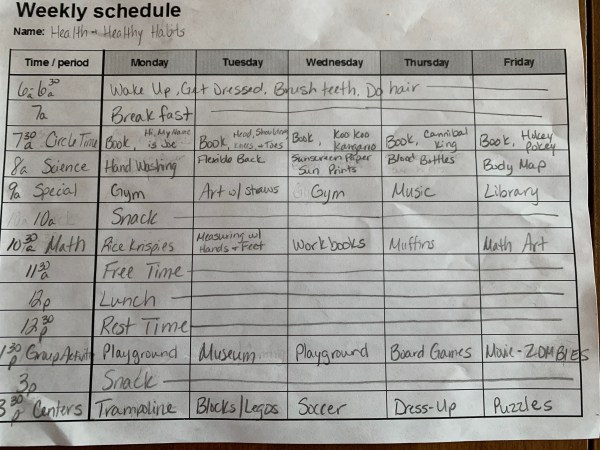 Weekly schedule
Name: Health - Healthy Habits
Time / period Monday Tuesday Wednesday Thursday Friday
6a-6:30a Wake Up, Get Dressed, Brush teeth, Do hair
7a Breakfast
7:30a Circle Time Book, Hi, My Name is Joe Book, Head, Shoulders, Knees, + Toes Book, Koo Koo Kangaroo Book, Cannibal King Book, Hokey Pokey
8a Science Hand Washing Flexible Back Sunscreen Paper Sun Prints Blood Bottles Body Map
9a Special Gym Art w/ straws Gym Music Library
10a Snack
10:30a Math Rice Krispies Measuring w/ Hands + Feet Workbooks Muffins Math Art
11:30a Free Time
12p Lunch
12:30p Rest Time
1:30p Group Activity Playground Museum Playground Board Games Movie - ZOMBIES
3p Snack
3:30p Centers Trampoline Blocks/Legos Soccer Dress-Up Puzzles